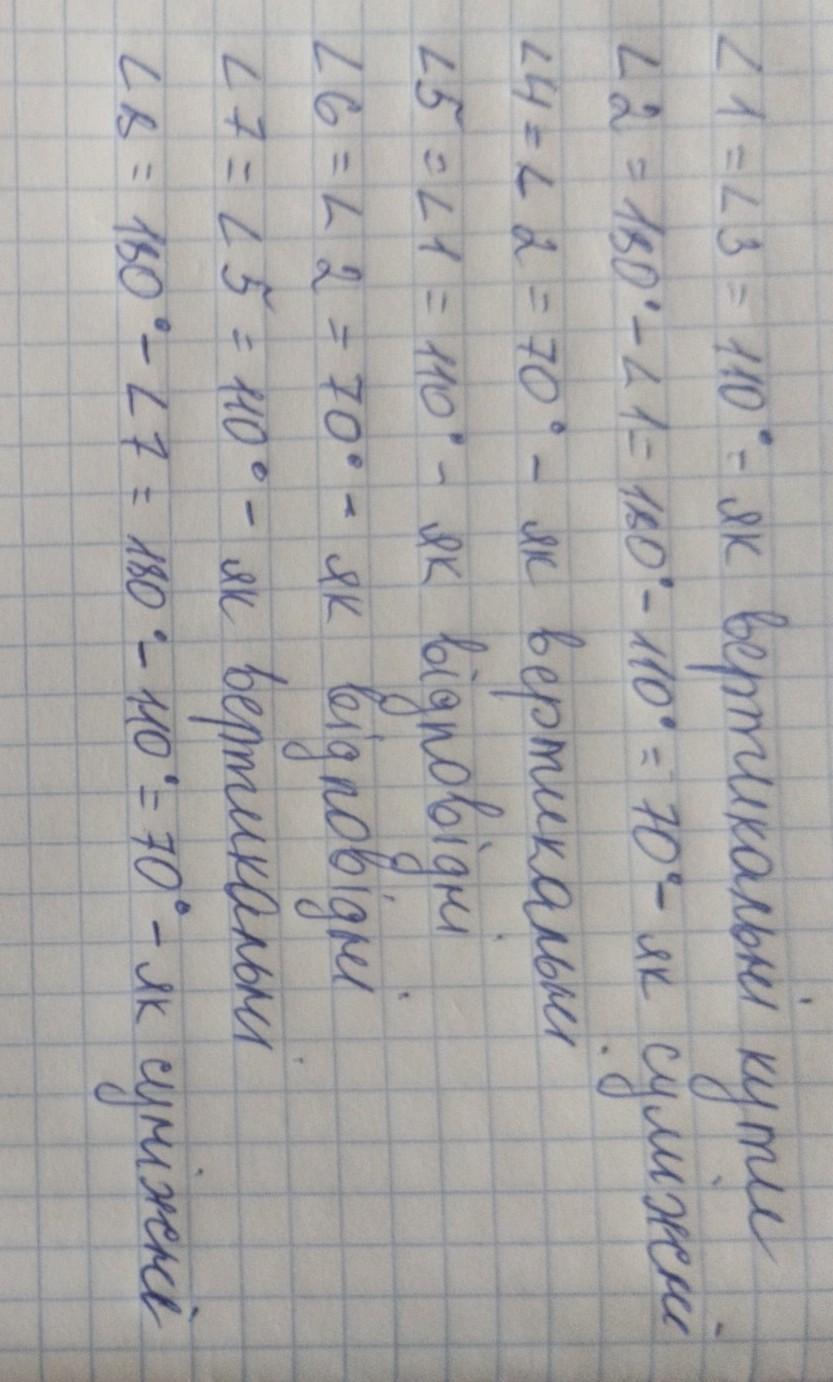 ∠1 = ∠3 = 110° - як вертикальні кути
∠2 = 180° - ∠1 = 180° - 110° = 70° - як суміжні
∠4 = ∠2 = 70° - як вертикальні
∠5 = ∠1 = 110° - як відповідні
∠6 = ∠2 = 70° - як відповідні
∠7 = ∠5 = 110° - як вертикальні
∠8 = 180° - ∠7 = 180° - 110° = 70° - як суміжні